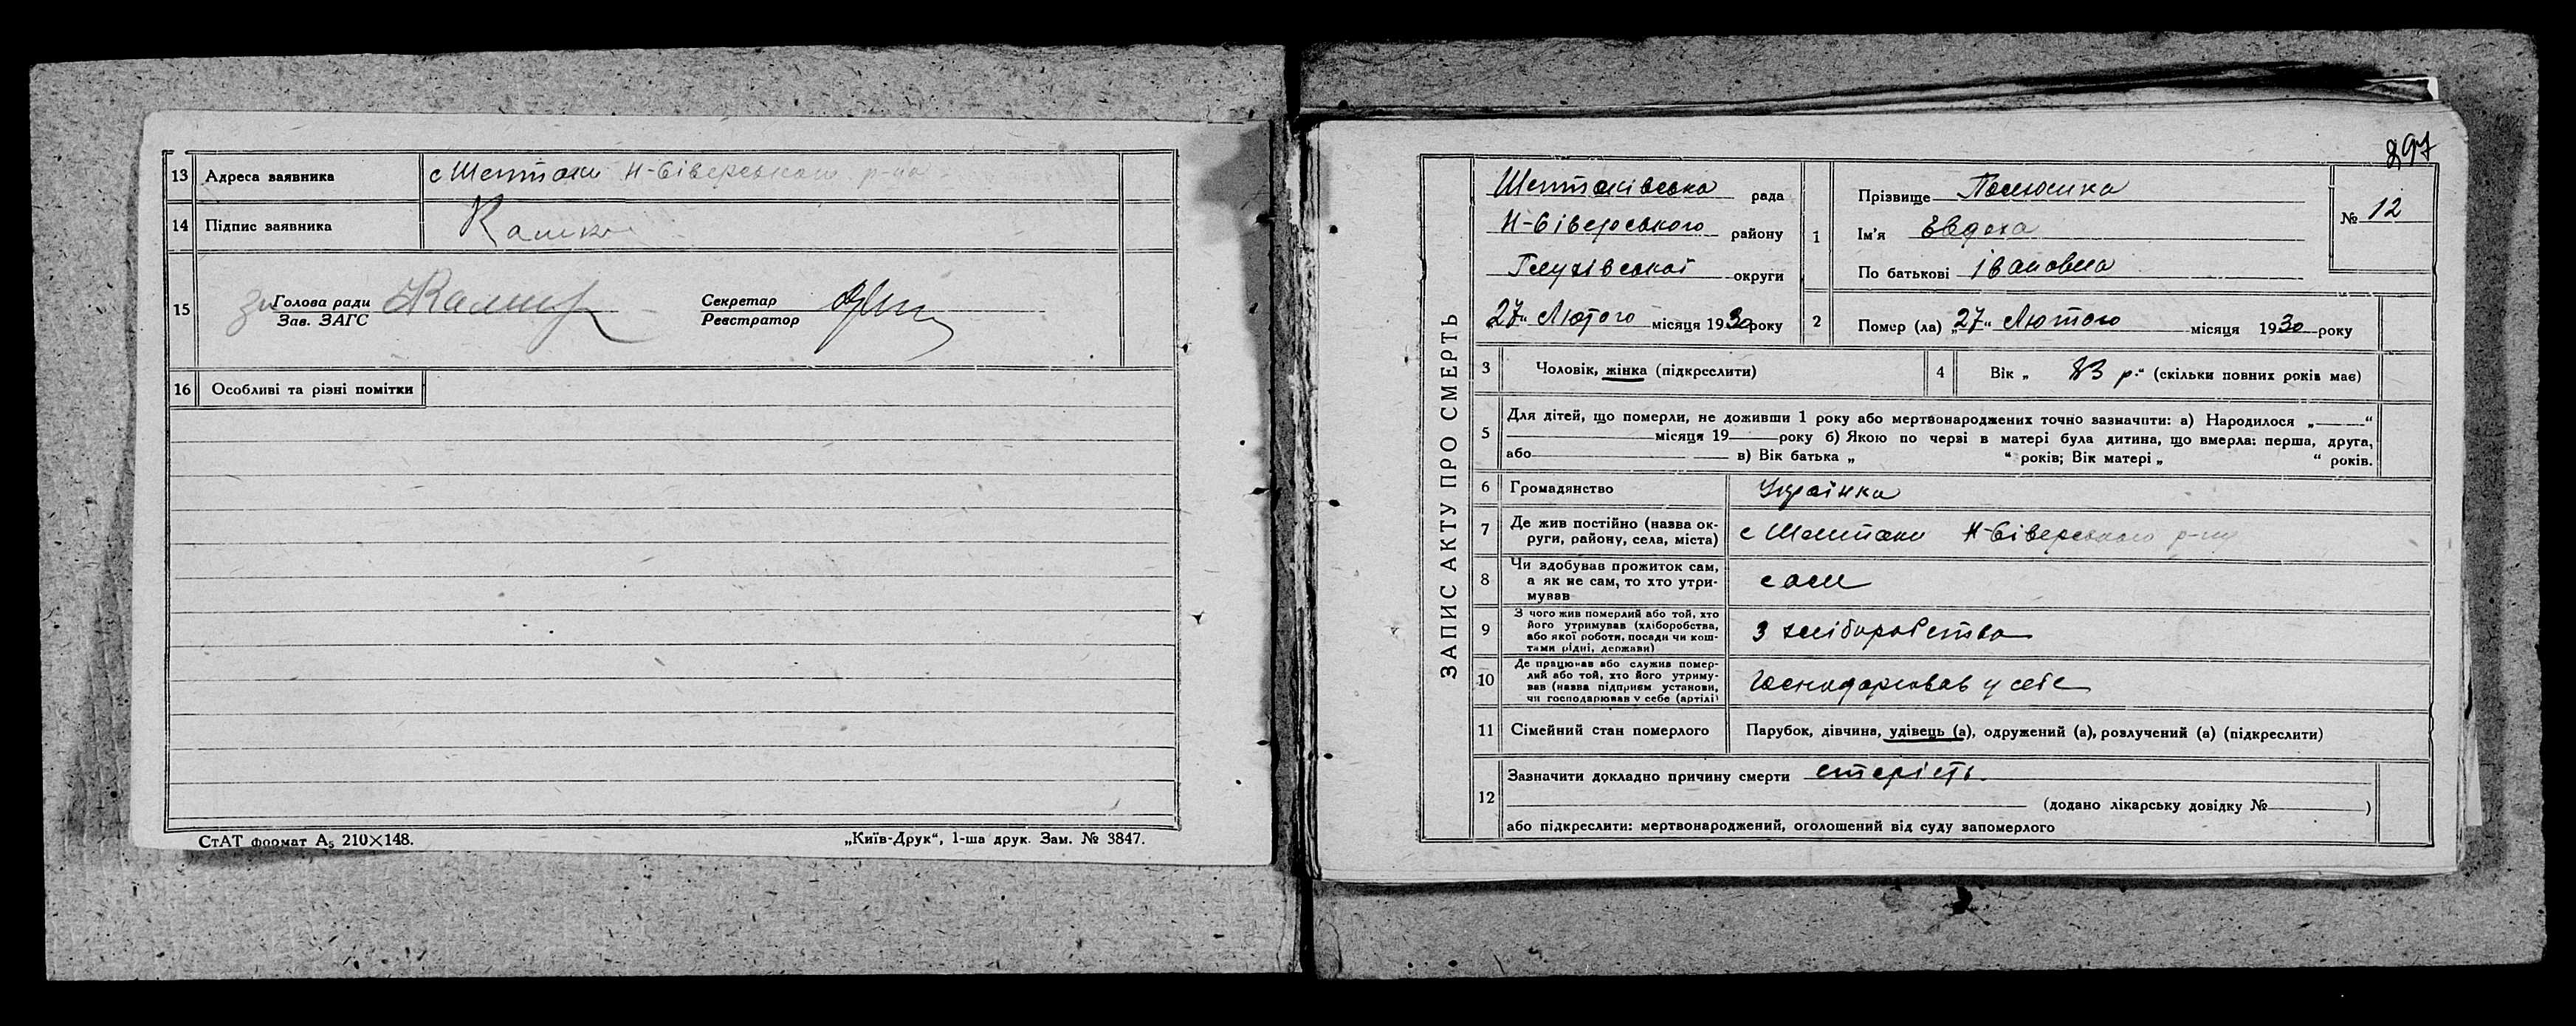 13 Адреса заявника с Шептаки Н-Сіверського р-на
14 Підпис заявника
15 за Голова ради
Зав. ЗАГС
Секретар
Реєстратор
16 Особливі та різні помітки
СтАТ формат А₅ 210×148.
„Київ-Друк“, 1-ша друк. Зам. № 3847.
897
ЗАПИС АКТУ ПРО СМЕРТЬ
Шептаківська рада
Н-Сіверського району
Глухівської округи
„27“ Лютого місяця 1930 року
1 Прізвище
Ім'я Евдоха
По батькові Івановна
№ 12
2 Помер (ла) „27“ Лютого місяця 1930 року
3 Чоловік, жінка (підкреслити)
4 Вік „ 83 р.“ (скільки повних років має)
5 Для дітей, що померли, не доживши 1 року або мертвонароджених точно зазначити: а) Народилося „ “
місяця 19 року б) Якою по черзі в матері була дитина, що вмерла: перша, друга,
або в) Вік батька „ “ років; Вік матері „ “ років.
6 Громадянство Українка
7 Де жив постійно (назва ок-
руги, району, села, міста) с Шептаки Н-Сіверського р-ну
8 Чи здобував прожиток сам,
а як не сам, то хто утри-
мував сам
9 З чого жив померлий або той, хто
його утримував (хліборобства,
або якої роботи, посади чи кош-
тами рідні, держави) з хліборобства
10 Де працював або служив помер-
лий або той, хто його утриму-
вав (назва підприєм установи,
чи господарював у себе (артілі) Господарював у себе
11 Сімейний стан померлого Парубок, дівчина, удівець (а), одружений (а), розлучений (а) (підкреслити)
12 Зазначити докладно причину смерти старість.
(додано лікарську довідку № )
або підкреслити: мертвонароджений, оголошений від суду запомерлого